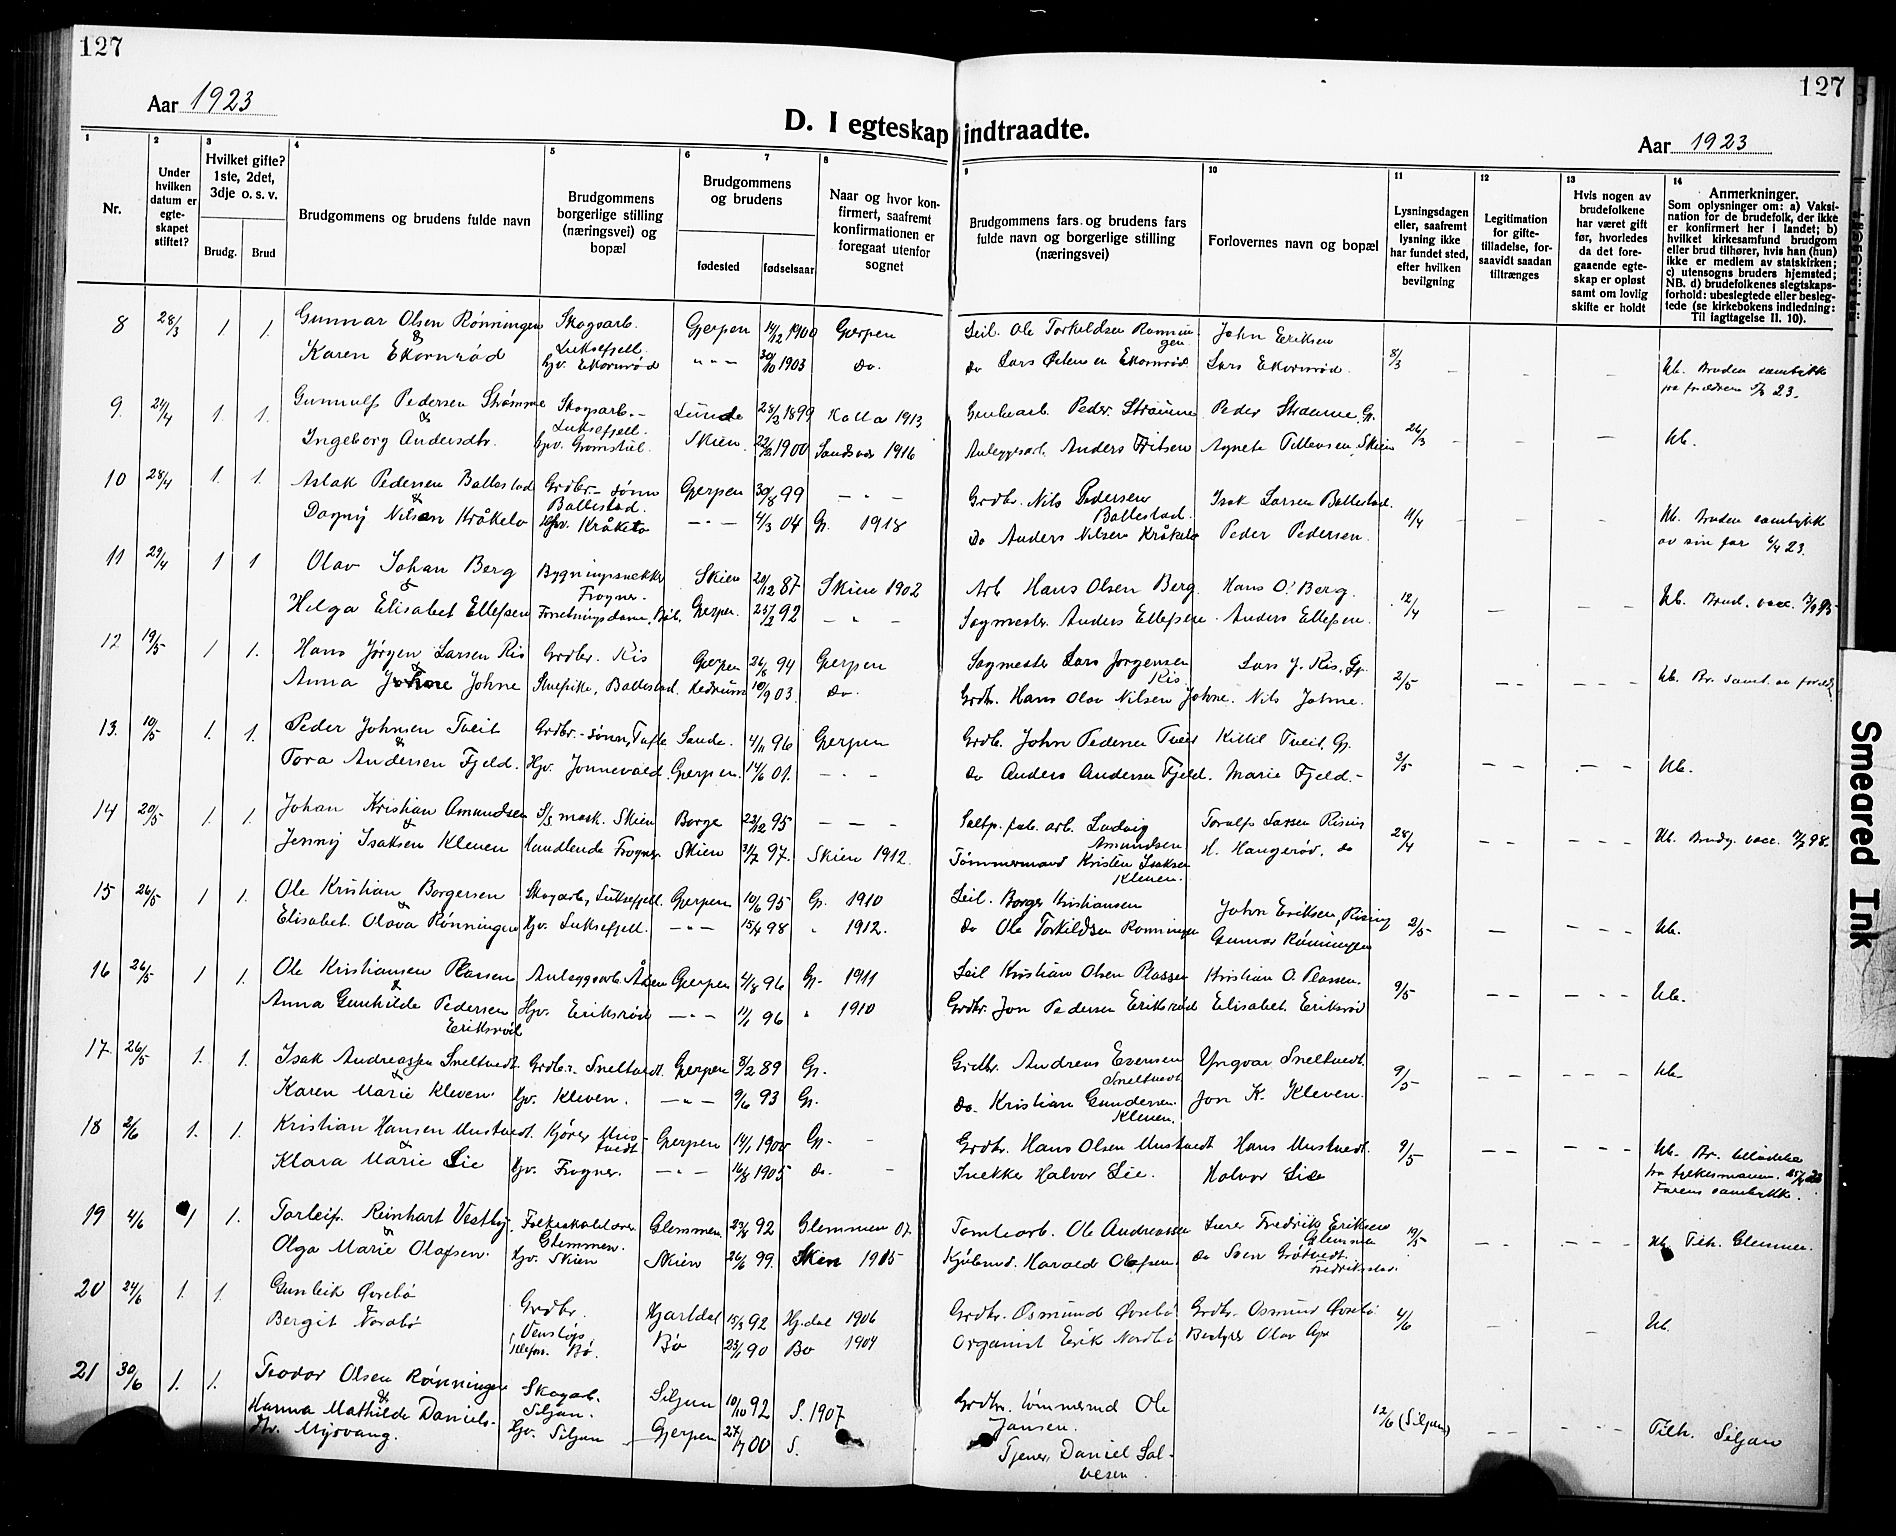 127
127
Aar 1923
D. I egteskap indtraadte.
Aar 1923
1
Nr.
2
Under hvilken datum er egte-skapet stiftet?
3
Hvilket gifte? 1ste, 2det, 3dje o. s. v.
Brudg. Brud
4
Brudgommens og brudens fulde navn
5
Brudgommens borgerlige stilling (næringsvei) og bopæl
6 7
Brudgommens og brudens
fødested fødselsaar
8
Naar og hvor kon-firmert, saafremt konfirmationen er foregaat utenfor sognet
9
Brudgommens fars og brudens fars fulde navn og borgerlige stilling (næringsvei)
10
Forlovernes navn og bopæl
11
Lysningsdagen eller, saafremt lysning ikke har fundet sted, efter hvilken bevilgning
12
Legitimation for gifte-tilladelse, for-saavidt saadan tiltrænges
13
Hvis nogen av brudefolkene har været gift før, hvorledes da det fore-gaaende egte-skap er opløst samt om lovlig skifte er holdt
14
Anmerkninger.
Som oplysninger om: a) Vaksi-nation for de brudefolk, der ikke er konfirmert her i landet; b) hvilket kirkesamfund brudgom eller brud tilhører, hvis han (hun) ikke er medlem av statskirken; c) utensogns bruders hjemsted; NB. d) brudefolkenes slegtskaps-forhold: ubeslegtede eller beslegtede (se kirkebokens indledning: Til iagttagelse II. 10).
8 28/3 1 1. Gunnar Olsen Rønningen Skogsarb. Luksefjell. Gjerpen 14/12 1900 Gjerpen Leil. Ole Torkildsen Rønningen John Eriksen 8/3
& Karen Ekornrød Hjv. Ekornrød " - - 30/10 1903 Do. Do Lars Ekornrød Lars Ekornrød. Ub. Bruden samtykke
9. 21/4 1. 1. Gunnulf Pedersen Strømme Skogsarb. - Luksefjell. Lunde 1899 1913 Peder Straume Peder Straume, Gj. 26/3
& Ingeborg Andersdtr. Hjv. Skien 1900 Sandsvær 1916 Anlæggsarb. Anders Fritsen Agnete Tillevsen, Skien Ub.
10 28/4 1 1. Aslak Pedersen Ballestad Grdbr. - sønn Ballestad. Gjerpen 30/8 99 - " - Grdbr. Nils Pedersen Ballestad. Isak Larsen Ballestad. 11/4
& Dagny Nilsen Kråkelo Hjv. Kråkelo - " - 4/3 04 G. 1918 Do Anders Nilsen Kråkelo Peder Pedersen. Ub. Bruden samtykke av sin far 6/4 23.
11 29/4 1 1 Olav Johan Berg Bygningssnekker Frogner. Skien 20/12 87 Skien 1902 Arb. Hans Olsen Berg Hans O. Berg. 12/4
& Helga Elisabet Ellefsen Forretningsdame, Gjerpen. 92 - " Sagmester. Anders Ellefsen Anders Ellefsen. Ub. Brud. vacc.
12 19/5 1 1. Hans Jørgen Larsen Ris Grdbr. Ris Gjerpen 26/6 94 Gjerpen Sagmester Lars Jørgensen Ris Lars J. Ris. Gj. 2/5
& Anna Johne Stuepike, Ballestad. Hedrum 10/9 03. Do. Grdbr. Hans Olav Nilsen Johne. Nils Johne. Ub. Br. samt. av foreld.
13. 10/5 1. 1. Peder Johnsen Tveit Grdbr. - sønn, Tufte Sande. 4/11 96 Gjerpen Grdb. John Pedersen Tveit Kittil Tveit, Gj. 3/5
& Tora Andersen Fjeld. Hjv. Jønnevald. Gjerpen. 14/6 01. - " - Do Anders Andersen Fjeld. Marie Fjeld. - Ub.
14 20/5 1. 1. Johan Kristian Amundsen S/S mask. Skien Borge 23/12 95 - - - Saltp. fab. arb. Ludvig Amundsen Toralf Larsen Rising 28/4
& Jenny Isaksen Kleven Handlende Frogner Skien 31/7 97. Skien 1912. Tømmermand Kristen Isaksen Kleven. H. Haugerød, do Ub. Brudg. vacc. 98.
15 26/5 1 1. Ole Kristian Borgersen Skogarb., Luksefjell. Gjerpen 10/6 95 Gj. 1910 Leil. Borger Kristiansen John Eriksen, Rising 2/5
& Elisabet Olava Rønningen Hjv. Luksefjell. - " - 15/4 98 " 1912. Do Ole Torkildsen Rønningen Gunnar Rønningen Ub.
16 26/5 1 1. Ole Kristiansen Plassen Anlæggsarb. Åsen Gjerpen 4/8 96 Gj. 1911 Leil Kristian Olsen Plassen Kristian O. Plassen. 9/5
& Anna Gunhilde Pedersen Eriksrød Hjv. Eriksrød - " - 11/1 96 " 1910 Grdbr. Jon Pedersen Eriksrød Elisabet Eriksrød Ub.
17 26/5 1. 1. Isak Andreassen Sneltvedt. Grdbr. Sneltvedt. Gjerpen 8/2 89 Gj. Grdbr. Andreas Evensen Sneltvedt Yngvar Sneltvedt. 9/5
& Karen Marie Kleven. Hjv. Kleven. - " - 9/6 93 Gj. Do. Kristian Gundersen Kleven. Jon K. Kleven. Ub.
18 2/6 1. 1. Kristian Hansen Mustvedt. Kjører Mustvedt Gjerpen 14/1 1900 Gj. - Grdbr. Hans Olsen Mustvedt Hans Mustvedt. 9/5
& Klara Marie Lie Hjv. Frogner. - " - 16/8 1905 Do. - Snekker Halvor Lie. Halvor Lie Ub. Br. tilladelse fra fylkesmannen. Farens samtykke.
19 4/6 1 1. Torleif Reinhart Vestby. Folkeskolelærer Glemmen. Glemmen 92 Glemmen 07. Tomtearb. Ole Andreassen Lærer Fredrik Eriksen Glemmen
& Olga Marie Olafsen. Hjv. Skien Skien 26/6 99. Skien 1915 Harald Olafsen do Sven Grøtvedt. Fredrikstad. Ub. Tilh. Glemmen.
20 24/6 1. 1. Gunleik Øvrebø Grdbr. Venstøp. Hjartdal 15/3 92 Hj.dal 1906 Grdbr. Osmund Øvrebø Grdbr. Osmund Øvrebø 4/6
& Bergit Nordbø Bø. Bø 90 Bø 1904 Organist Erik Nordbø Olav Ub.
21 30/6 1. 1. Teodor Olsen Rønningen Skogarb. Siljan. Siljan 10/10 92 S. 1907 Grdbr. tømmermd Ole Jansen. 12/6 (Siljan)
& Hanna Mathilde Danielsdtr. Myrvang. Hjv. Siljan Gjerpen 00 S. Tjener Daniel Salvesen Tilh. Siljan
Smeared Ink